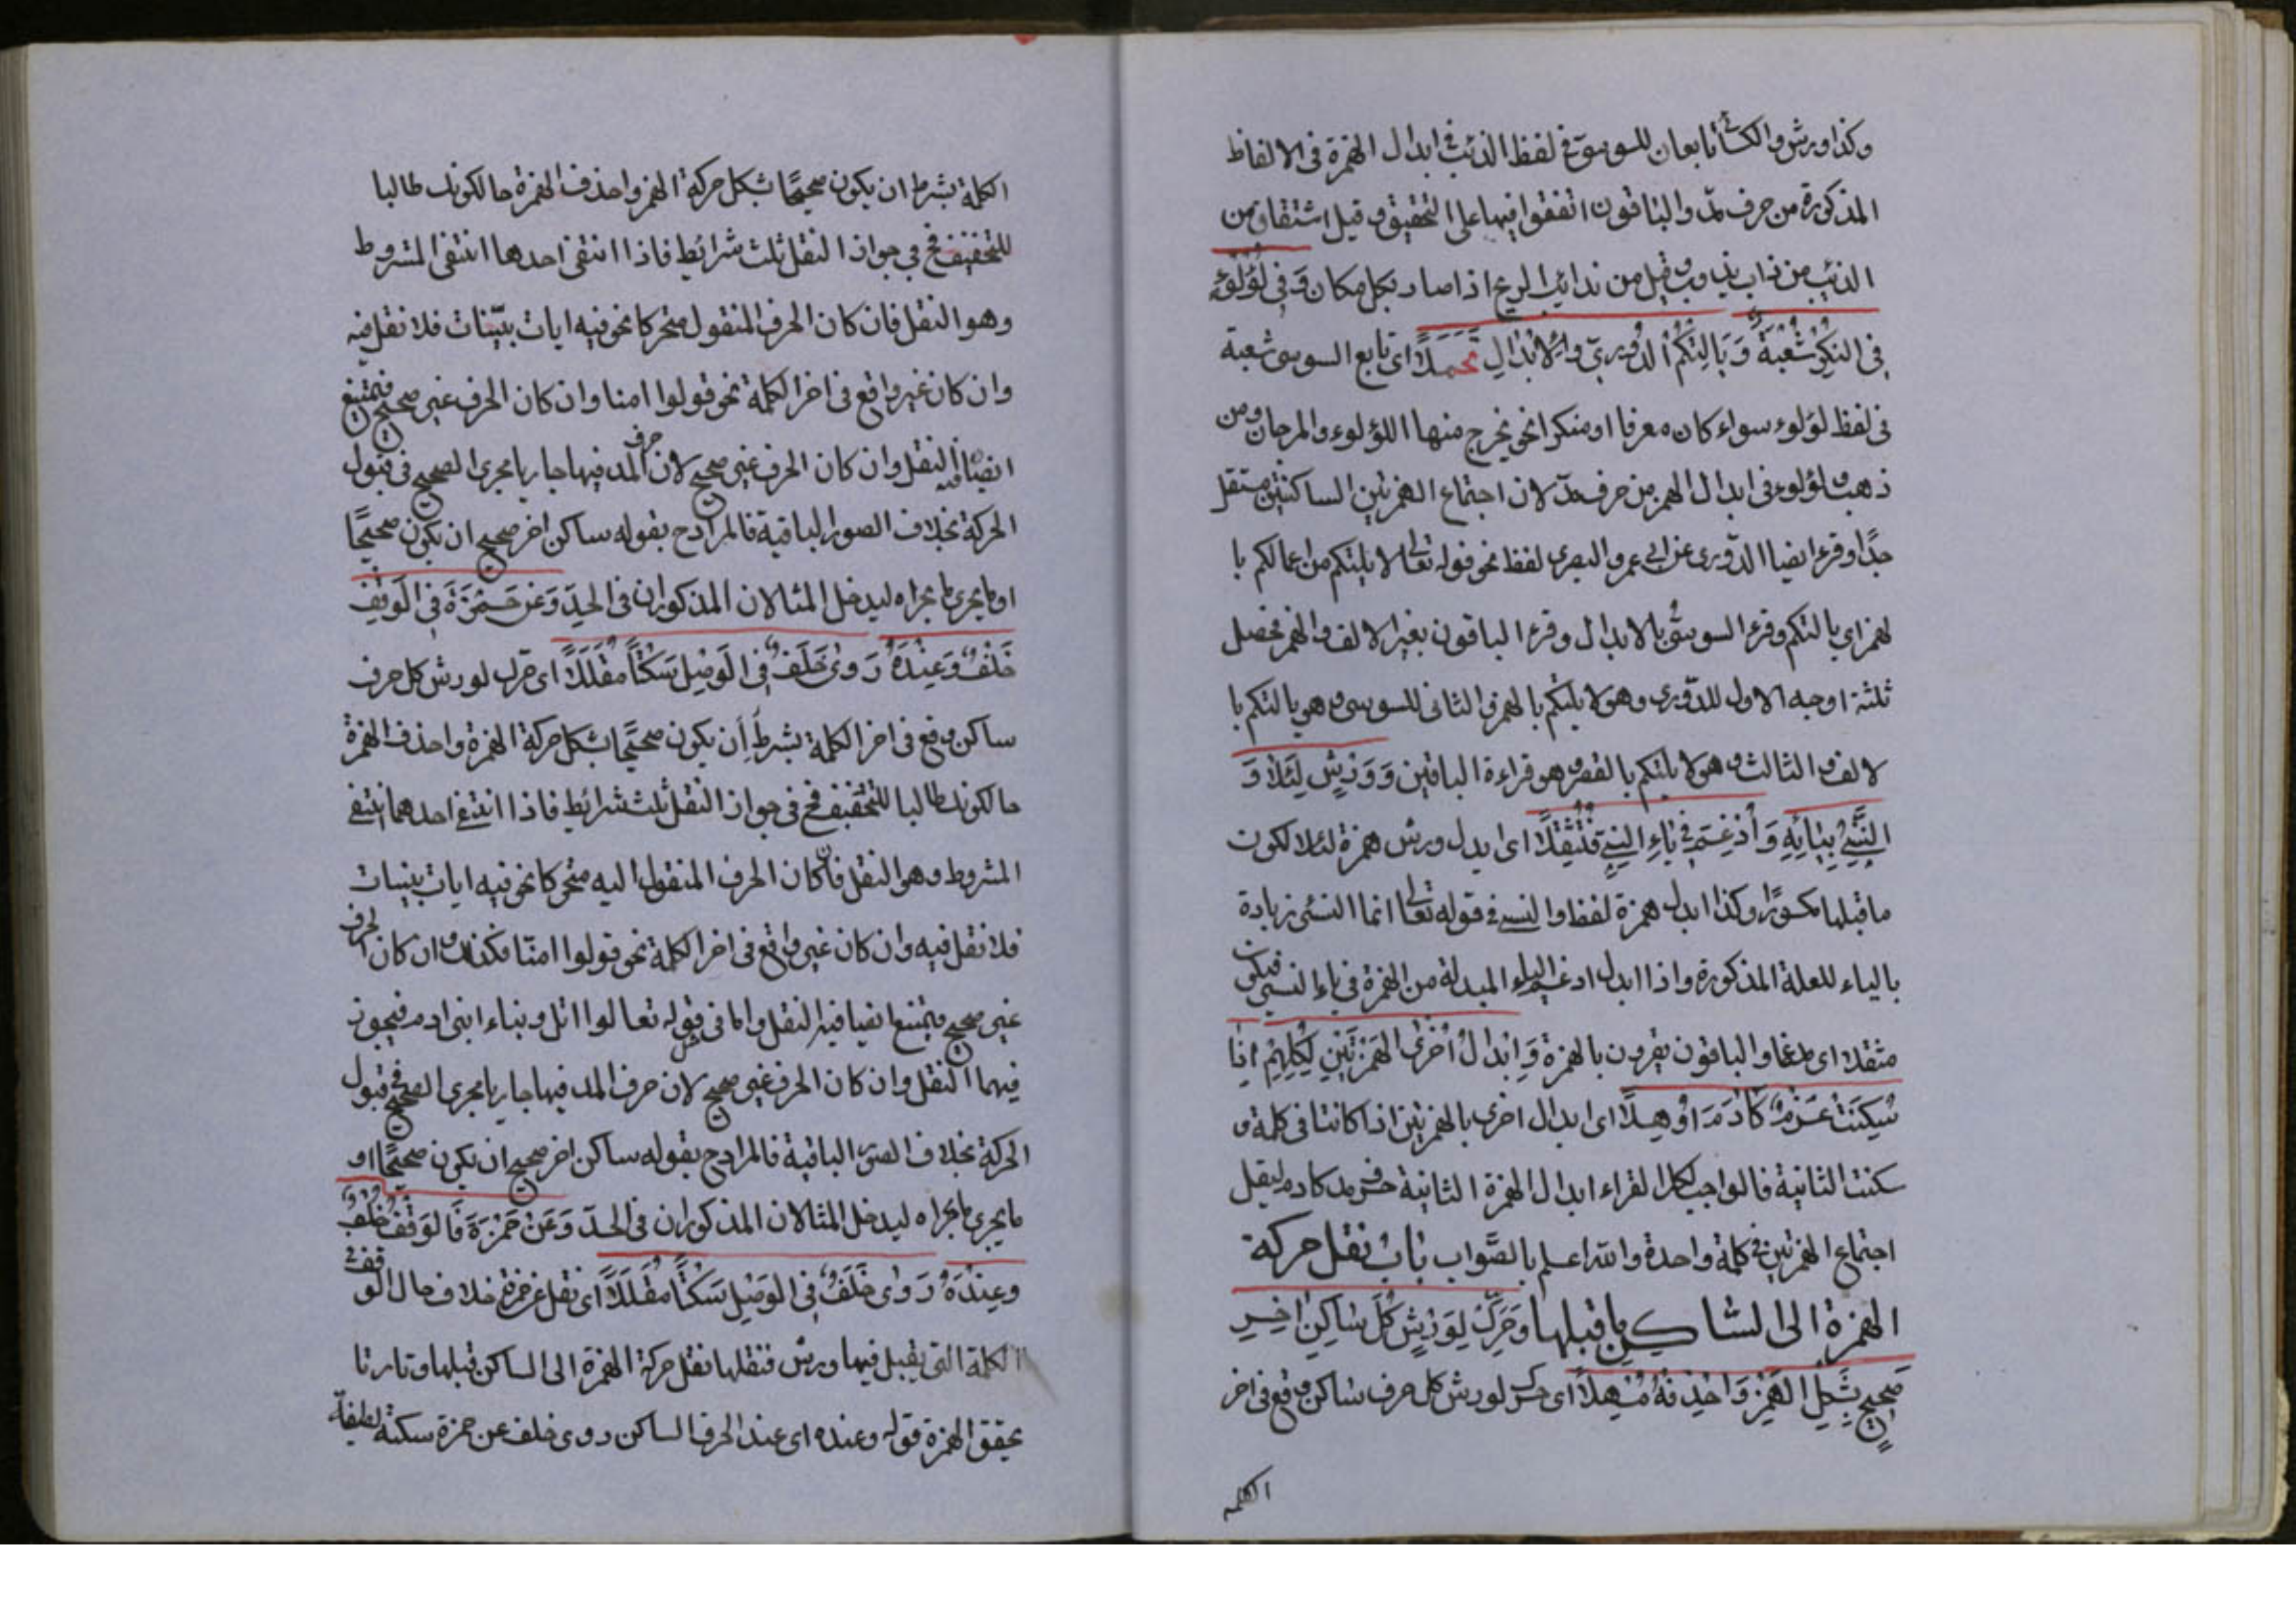 وكذا ورش والكسائى تابعان للسوسى فى لفظ الذئب فى ابدال الهمزة فى الالفاظ
المذكورة من حرف مد والباقون اتفقوا فيها على التحقيق وقيل اشتقاق من
الذئب من ذاب يذوب وقيل من تذائب الريح اذا صار بكل مكان وَفِى لُؤْلُؤٍ
فِى النكر شُعْبَةٌ وَيَالِتْكُمُ الدُّورِىّ وَالاِبْدَالِ يُحتملا اى تابع السوسى شعبة
فى لفظ لؤلوء سواء كان معرفا او منكرا نحو يخرج منها اللؤلوء والمرجان ومن
ذهب ولؤلوء فى ابدال الهمز من حرف مد لان اجتماع الهمزتين الساكنتين مستثقل
جدًّا وقرء ايضا الدّورى عن ابى عمرو البصرى لفظ نحو قوله تعالى لا يلتكم من اعمالكم با
لهمز اى يالتكم وقرء السوسى بالابدال وقرء الباقون بغير الالف والهمز فحصل
ثلثة اوجه الاول للدّورى وهو لا يلئكم بالهمز والثانى للسوسى وهى يالتكم با
لالف والثالث وهو لا يلتكم بالقصر وهو قراءة الباقين وَوَرْشٍ لِئَلاَّ وَ
النَّسِىُٔ بِيَائِهِ وَأَدْغَمَ فِى يَاءِ النَّسِىِٔ فَثَقَّلاَ اى يبدل ورش همزة لئلا لكون
ما قبلها مكسورًا وكذا ابدل همزة لفظ والنسىء فى قوله تعالى انما النسئى زيادة
بالياء للعلة المذكورة واذا ابدل ادغم الياء المبدلة من الهمزة فى ياء النسىء فيكون
مثقلا اى مدغما والباقون يقرون بالهمزة وَاِبْدَالُ اُخْرَى الهَمْزَتَيْنِ لِكُلِّهِمْ اِذَا
سَكَنَتْ عَزْمٌ كَآدَمَ اُوْهِلاَ اى ابدال اخرى بالهمزتين اذا كانتا فى كلمة و
سكنت الثانية فالواجب لكل القراء ابدال الهمزة الثانية حرف مد كادم ليقل
اجتماع الهمزتين فى كلمة واحدة والله اعلم بالصَّواب باب نقل حركة
الهمزة الى الساكن ما قبلها وَحَرِّكْ لِوَرْشٍ كُلَّ سَاكِنٍ اخِرٍ
صَحِيحٍ بِشَكْلِ الهَمْزِ وَاحْذِفْهُ مُسْهِلاً اى حرك لورش كل حرف ساكن وقع فى اخر
الكلمه
الكلمة بشرط ان يكون صحيحًا بشكل حركة الهمز واحذف الهمزة حالكونك طالبا
للتخفيف فح فى جواز النقل ثلث شرائط فاذا انتفى احدها انتفى المشروط
وهو النقل فان كان الحرف المنقول متحركا نحو فيه ايات بيّنات فلا نقل فيه
وان كان غير واقع فى اخر الكلمة نحو قولوا امنا وان كان الحرف غير صحيح فيمتنع
ايضًا فيه النقل وان كان الحرف غير صحيح لان حرف المد فيها جاريا مجرى الصحيح فى قبول
الحركة بخلاف الصور الباقية فالمراد ح بقوله ساكن اخر صحيح ان يكون صحيحًا
او ما يجرى مجراه ليدخل المثالان المذكوران فى الحدّ وَعَن حَمْزَةَ فِى الوَقْفِ
خُلْفٌ وَعِنْدَهُ رَوَى خَلَفٌ فِى الوَصْلِ سَكْتًا مُقَلَّلاً اى حرك لورش كل حرف
ساكن وقع فى اخر الكلمة بشرط أن يكون صحيحًا بشكل حركة الهمزة واحذف الهمزة
حالكونك طالبا للتخفيف فح فى جواز النقل ثلث شرائط فاذا انتفى احدهما انتفى
المشروط وهو النقل فان كان الحرف المنقول اليه متحركا نحو فيه ايات بينات
فلا نقل فيه وان كان غير واقع فى اخر الكلمة نحو قولوا امنّا فكذلك وان كان الحرف
غير صحيح فيمتنع ايضا فيه النقل واما فى مثل قوله تعالوا اتل ونباء ابنى ادم فيجوز
فيهما النقل وان كان الحرف غير صحيح لان حرف المد فيها جاريا مجرى الصحيح فى قبول
الحركة بخلاف الصور الباقية فالمراد ح بقوله ساكن اخر صحيح ان يكون صحيحًا او
ما يجرى مجراه ليدخل المثالان المذكوران فى الحدّ وَعَنْ حَمْزَةَ فَالوَقْفُ خُلْفٌ
وعِنْدَهُ رَوَى خَلَفٌ فِى الوَصْلِ سَكْتًا مُقَلَّلاً اى نقل عن حمزة خلاف حال الوقف فى
الكلمة التى يقبل فيها ورش فنقلها نقل حركة الهمزة الى الساكن قبلها وتارتا
يحقق الهمزة قوله وعنده اى عند الحرف الساكن روى خلف عن حمزة سكتة لطيفة